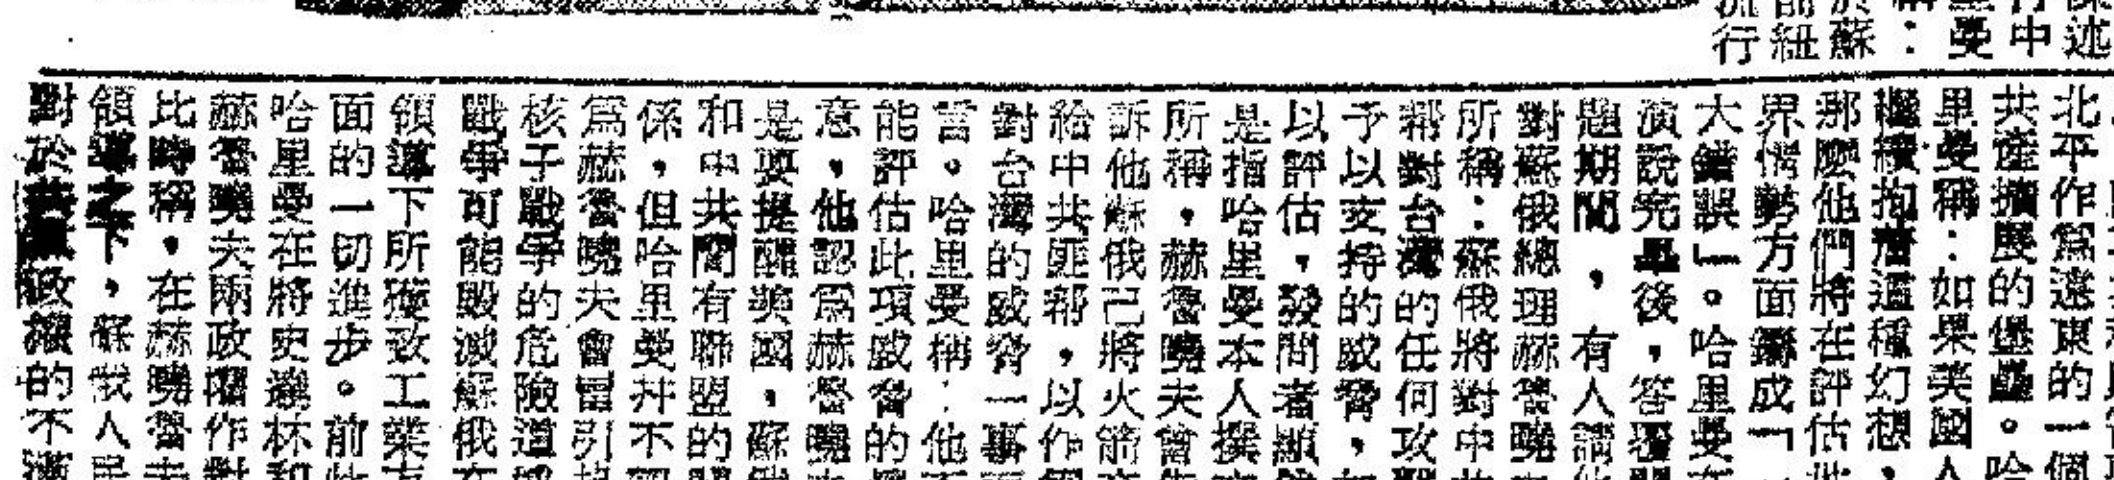 述
行中
里曼
稱：
於蘇
前紐
流行
北平作爲遠東的一個
共產擴展的堡壘。哈
里曼稱：如果美國人
繼續拘泥這種幻想，
那麼他們將在評估世
界情勢方面鑄成「
大錯誤」。哈里曼在
演說完畢後，答覆問
題期間，有人請他
對蘇俄總理赫魯曉夫
所稱：蘇俄將對中共
幫對台灣的任何攻擊
予以支持的威脅，
以評估，發問者顯然
是指哈里曼本人撰文
所稱，赫魯曉夫曾告
訴他蘇俄已將火箭
給中共匪幫，以作
對台灣的威脅一事
言。哈里曼稱：他不
能評估此項威脅的
意，他認爲赫魯曉夫
是要提醒美國，蘇俄
和中共間有聯盟的關
係，但哈里曼并不認
爲赫魯曉夫會冒引起
核子戰爭的危險道
戰爭可能毀滅蘇俄在
領導下所獲致工業方
面的一切進步。前此
哈里曼在將史達林和
赫魯曉夫兩政權作對
比時稱，在赫曉魯夫
領導之下，蘇俄人民
對於共黨政權的不滿